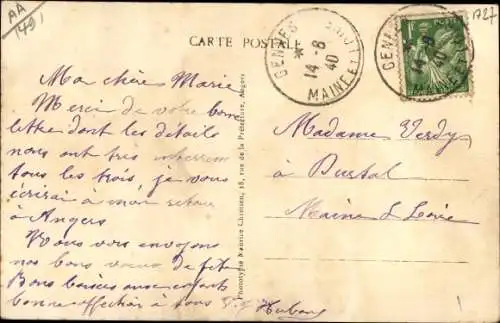 AA
1491
1727
CARTE POSTALE
GENNES
14-8
40
MAINE ET
POSTES
GENNES
14-8
40
Ma chère Marie
Merci de votre bonne
lettre dont les détails
nous ont très
tous les trois, je vous
écrirai à mon retour
à Angers
Nous vous envoyons
nos bons vœux de fête
Bons baisers aux enfants
bonne affection à tous
Phototypie Maurice Chrétien, 18, rue de la Préfecture, Angers
Madame Verdy
à Durtal
Maine & Loire